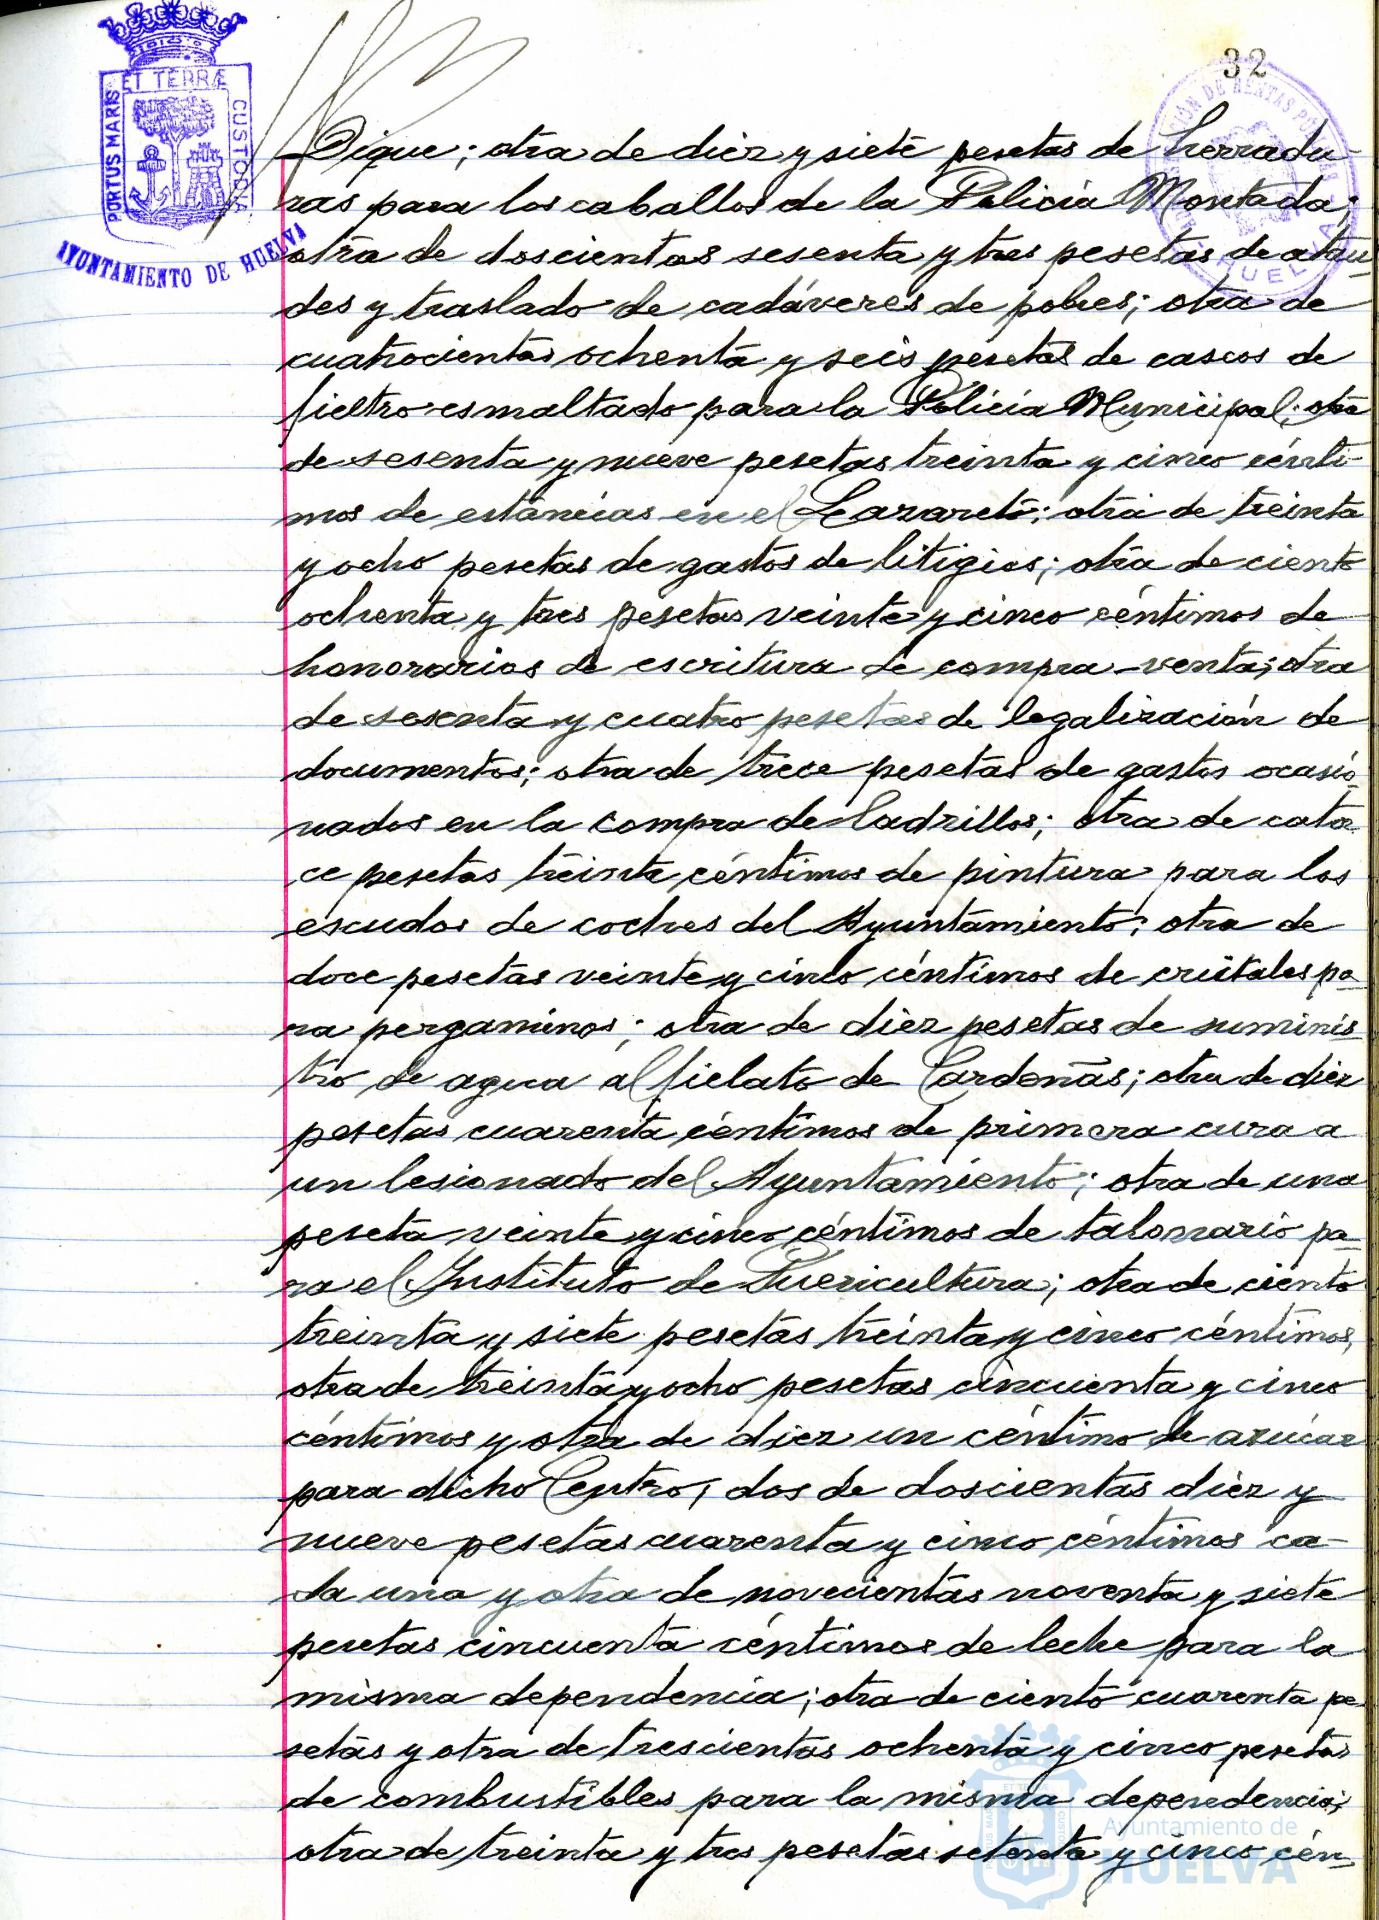 32
PORTUS MARIS ET TERRÆ CUSTODIA
AYUNTAMIENTO DE HUELVA
Dique; otra de diez y siete pesetas de herradu-
ras para los caballos de la Policía Montada;
otra de doscientas sesenta y tres pesetas de ataú
des y traslado de cadáveres de pobres; otra de
cuatrocientas ochenta y seis pesetas de cascos de
fieltro esmaltado para la Policía Municipal; otra
de sesenta y nueve pesetas treinta y cinco cénti-
mos de estancias en el Lazareto; otra de treinta
y ocho pesetas de gastos de litigios; otra de ciento
ochenta y tres pesetas veinte y cinco céntimos de
honorarios de escritura de compra-venta; otra
de sesenta y cuatro pesetas de legalización de
documentos; otra de trece pesetas de gastos ocasio
nados en la compra de ladrillos; otra de cator
ce pesetas treinta céntimos de pintura para los
escudos de coches del Ayuntamiento; otra de
doce pesetas veinte y cinco céntimos de cristales pa-
ra pergaminos; otra de diez pesetas de suminis-
tro de agua al fielato de Cardeñas; otra de diez
pesetas cuarenta céntimos de primera cura a
un lesionado del Ayuntamiento; otra de una
peseta veinte y cinco céntimos de talonario pa-
ra el Instituto de Puericultura; otra de ciento
treinta y siete pesetas treinta y cinco céntimos,
otra de treinta y ocho pesetas cincuenta y cinco
céntimos y otra de diez un céntimo de azúcar
para dicho Centro, dos de doscientas diez y
nueve pesetas cuarenta y cinco céntimos ca-
da una y otra de novecientas noventa y siete
pesetas cincuenta céntimos de leche para la
misma dependencia; otra de ciento cuarenta pe
setas y otra de trescientas ochenta y cinco pesetas
de combustibles para la misma dependencia;
otra de treinta y tres pesetas setenta y cinco cén-
Ayuntamiento de
HUELVA